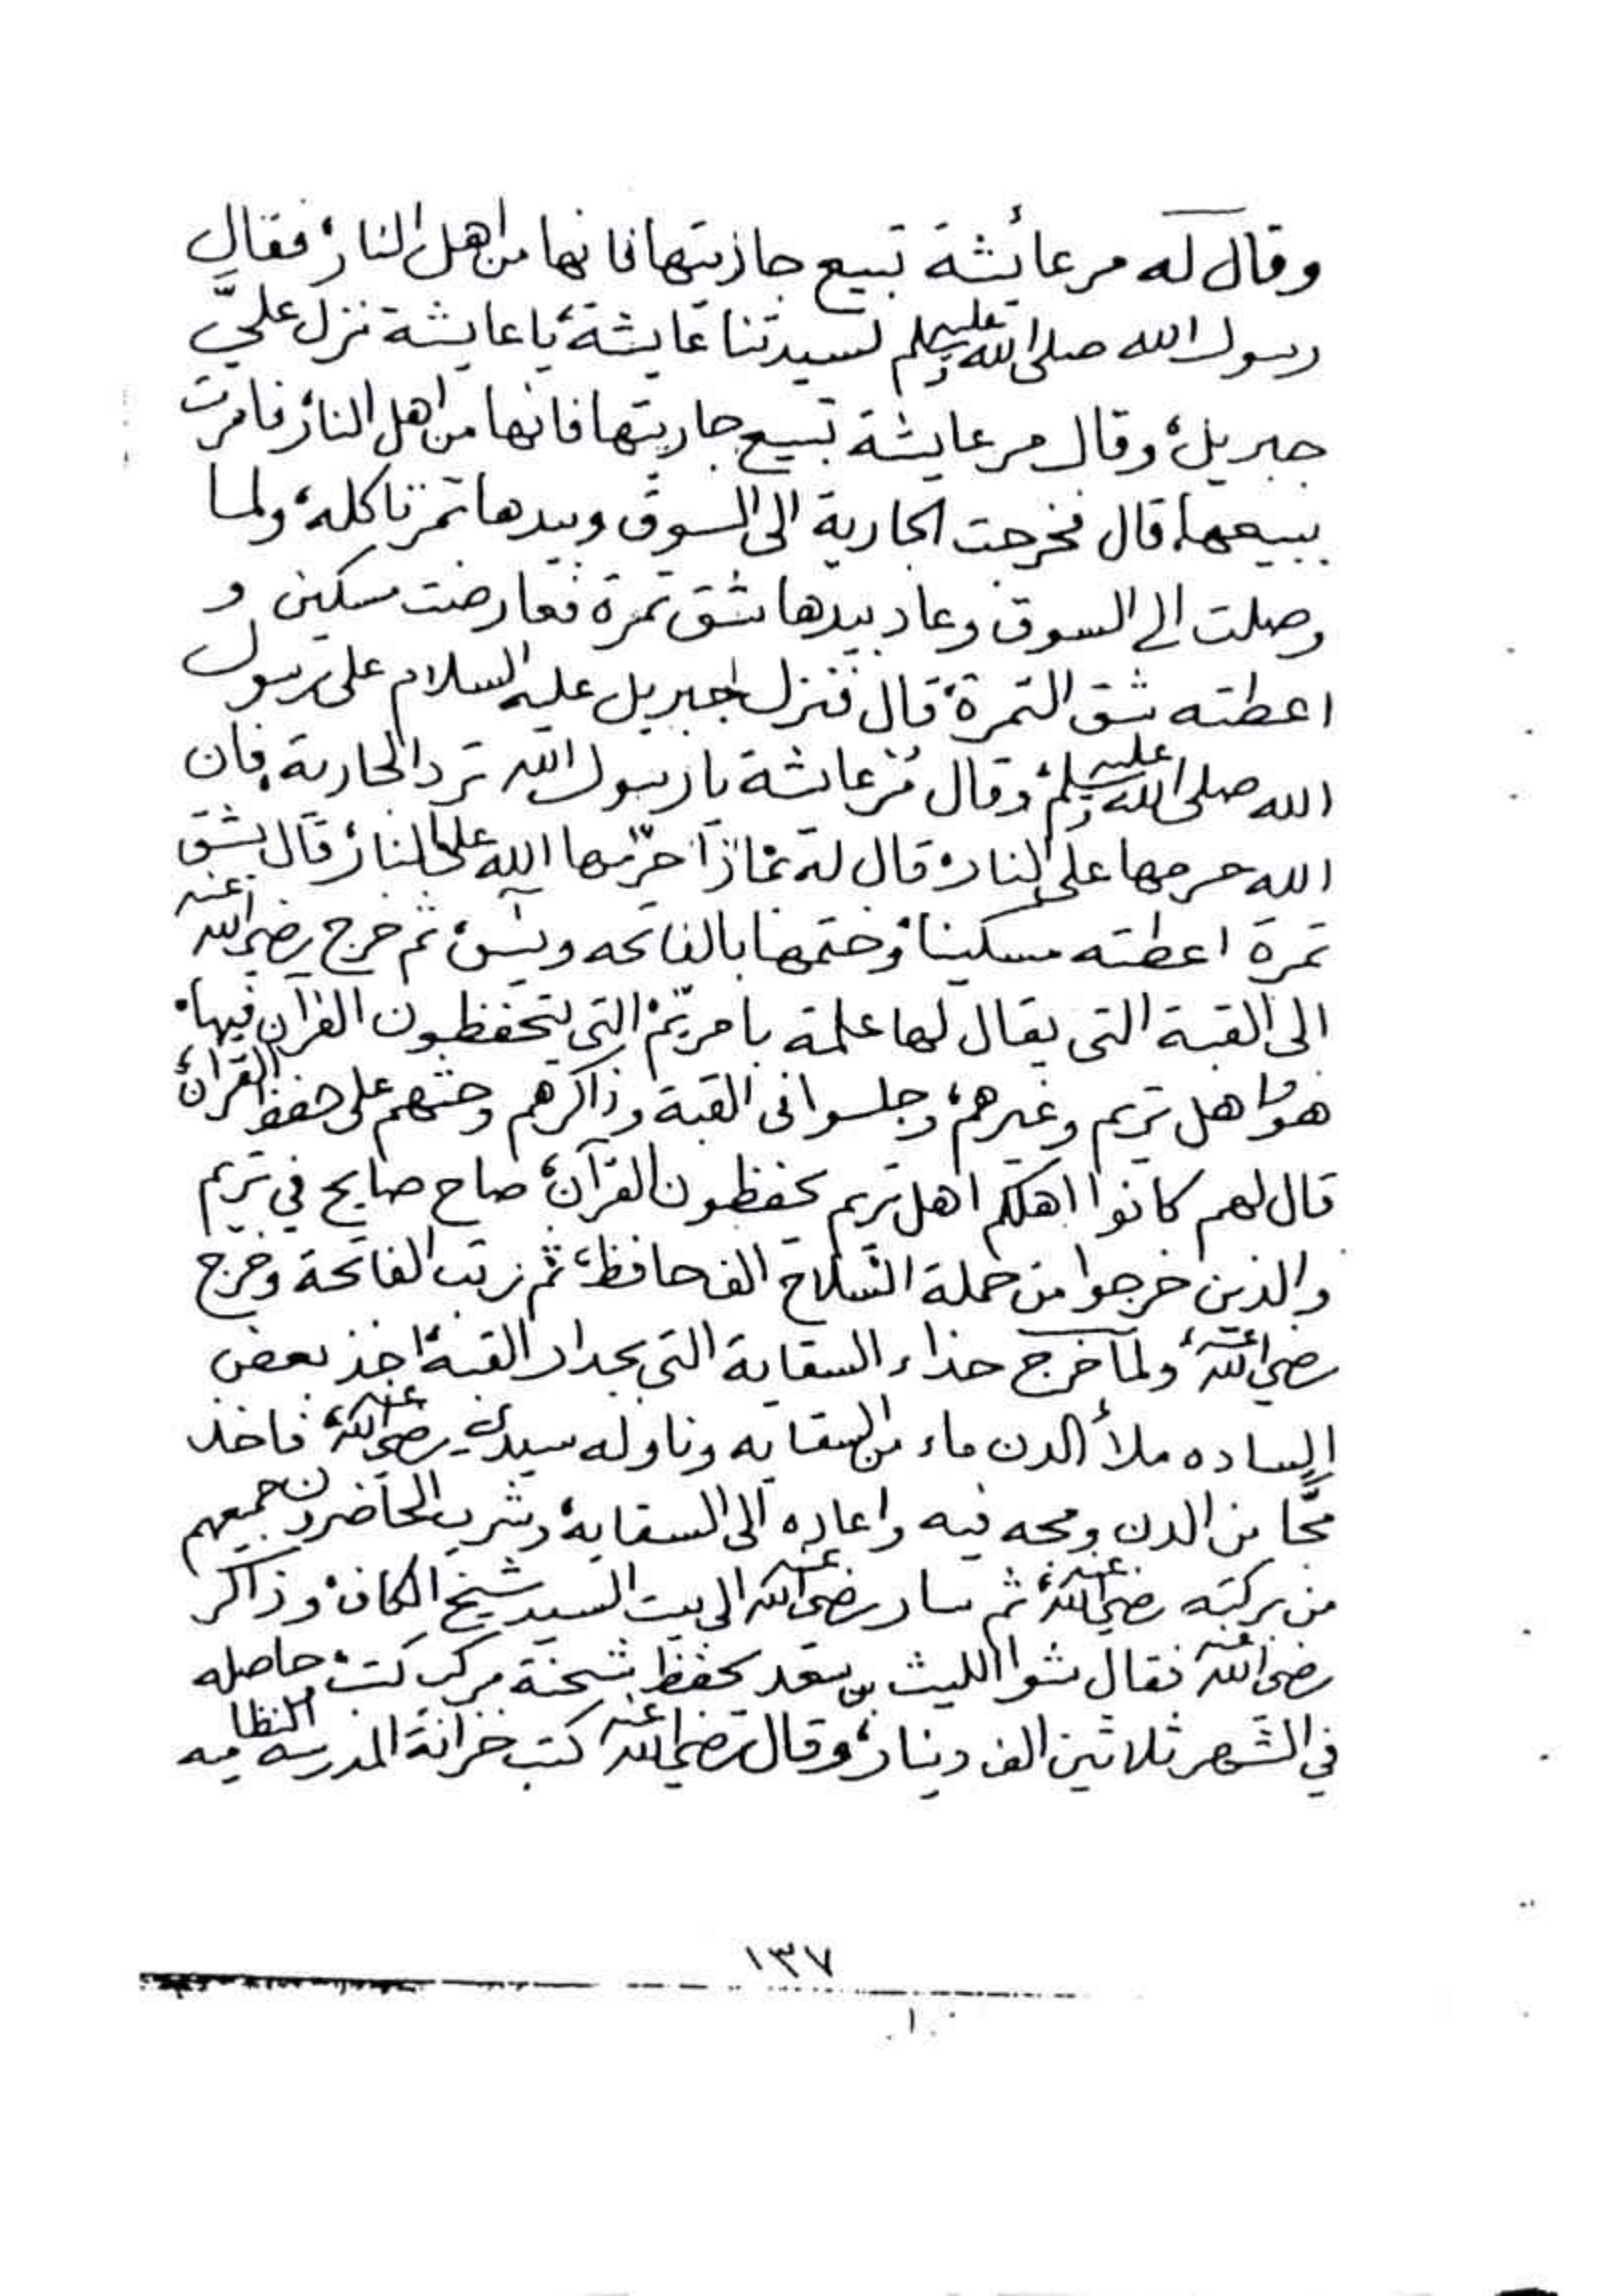 وقال له مر عائشة تبيع جاريتها فانها من اهل النار، فقال
رسول الله صلى الله عليه وسلم لسيدتنا عايشة، يا عايشة نزل عليَّ
جبريل، وقال مر عايشة تبيع جاريتها فانها من اهل النار، فامرت
ببيعها، قال فخرجت الجارية الى السوق وبيدها تمر تاكله، ولما
وصلت الى السوق وعاد بيدها شق تمرة فعارضت مسكين و
اعطته شق التمرة، قال فنزل جبريل عليه السلام على رسول
الله صلى الله عليه وسلم، وقال مُر عائشة يا رسول الله ترد الجارية، فان
الله حرمها على النار، قال له بماذا حرّمها الله على النار، قال بشق
تمرة اعطته مسكينا، وختمها بالفاتحه ويسٓ، ثم خرج رضي الله عنه
الى القبة التي يقال لها علمة با مريّم، التي يتحفظون القرآن فيها،
هو واهل تريم وغيرهم، وجلسوا في القبة وذاكرهم وحثهم على حفظ القرآن،
قال لهم كانوا اهلكم اهل تريم يحفظون القرآن، صاح صايح في تريم
والذين خرجوا من حملة السّلاح الف حافظ، ثم رتب الفاتحة وخرج
رضي الله عنه، ولما خرج حذاء السقاية التي بجدار القبة، اخذ بعض
الساده ملأ الدن ماء من السقايه وناوله سيدي رضي الله عنه، فاخذ
مجًّا من الدن ومجه فيه واعاده الى السقايه، وشرب الحاضرون جميعهم
من بركته رضي الله عنه، ثم سار رضي الله عنه الى بيت السيد شيخ الكاف، وذاكر
رضي الله عنه فقال شوا الليث بن سعد يحفظ شحنة مركب كتب، حاصله
في الشهر ثلاثين الف دينار، وقال رضي الله عنه كتب خزانة المدرسه النظاميه
١٣٧